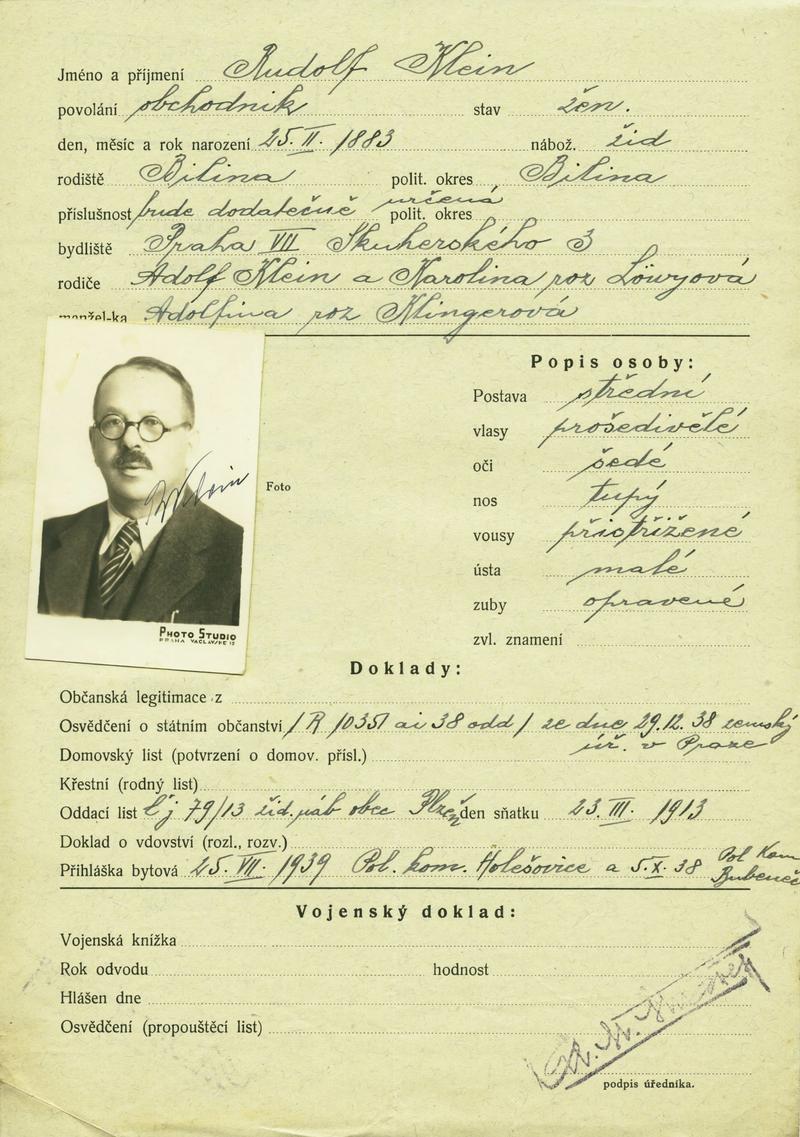 Jméno a příjmení Rudolf Klein
povolání obchodník stav žen.
den, měsíc a rok narození 25. II. 1883 nábož. žid
rodiště Bilina polit. okres Bilina
příslušnost bude dodatečně určená polit. okres
bydliště Praha VII Skuherského 3
rodiče Adolf Klein a Karolina roz Löwyová
manžel-ka Adolfina roz Klingerová
Popis osoby:
Postava střední
vlasy prošedivělé
oči šedé
Klein
Foto
nos tupý
vousy přistřižené
ústa malé
zuby opravené
PHOTO STUDIO
PRAHA VÁCLAVSKÉ
zvl. znamení
Doklady:
Občanská legitimace z
Osvědčení o státním občanství /R /0351 ai 38 odd / ze dne 29.12. 38 zemský
úř. v Praze
Domovský list (potvrzení o domov. přísl.)
Křestní (rodný list)
Oddací list čj 79/13 žid. náb obec Plzeň den sňatku 23. III. 1913
Doklad o vdovství (rozl., rozv.)
Přihláška bytová 25. VII. 1939 Pol. kom. Holešovice a 5. X. 38 Pol Kom
Bubeneč
Vojenský doklad:
Vojenská knížka
Rok odvodu hodnost
Hlášen dne
Osvědčení (propouštěcí list)
podpis úředníka.